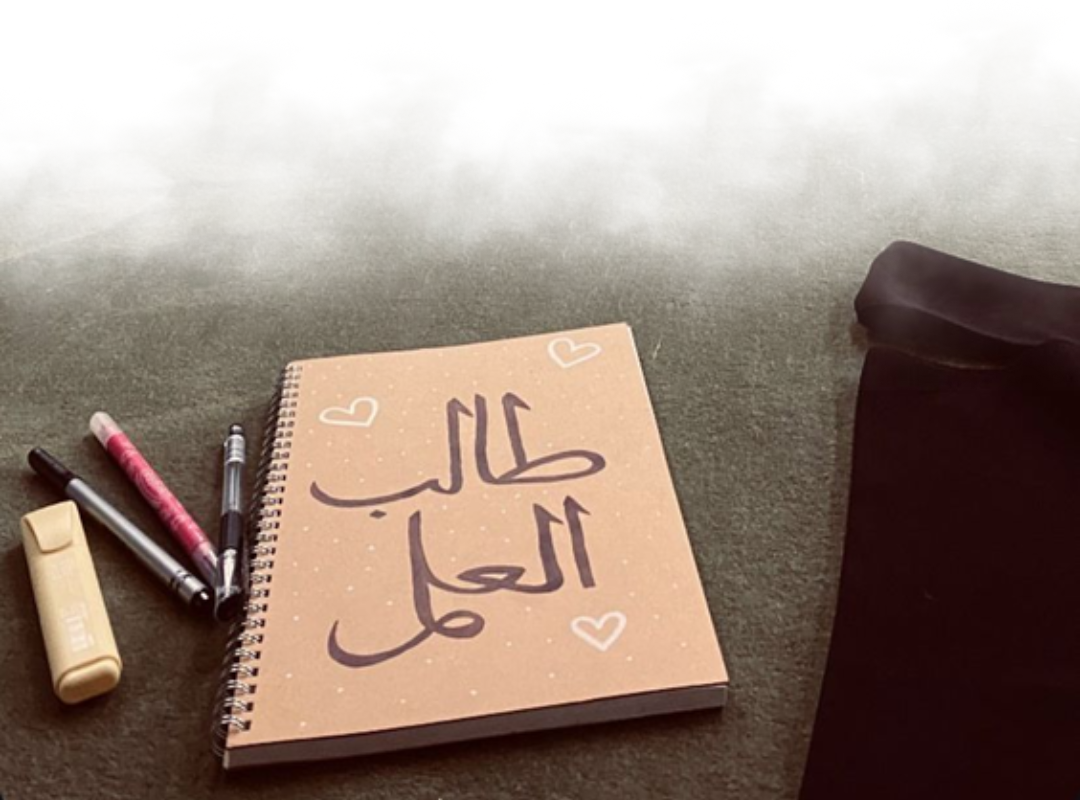 طالب
العلم